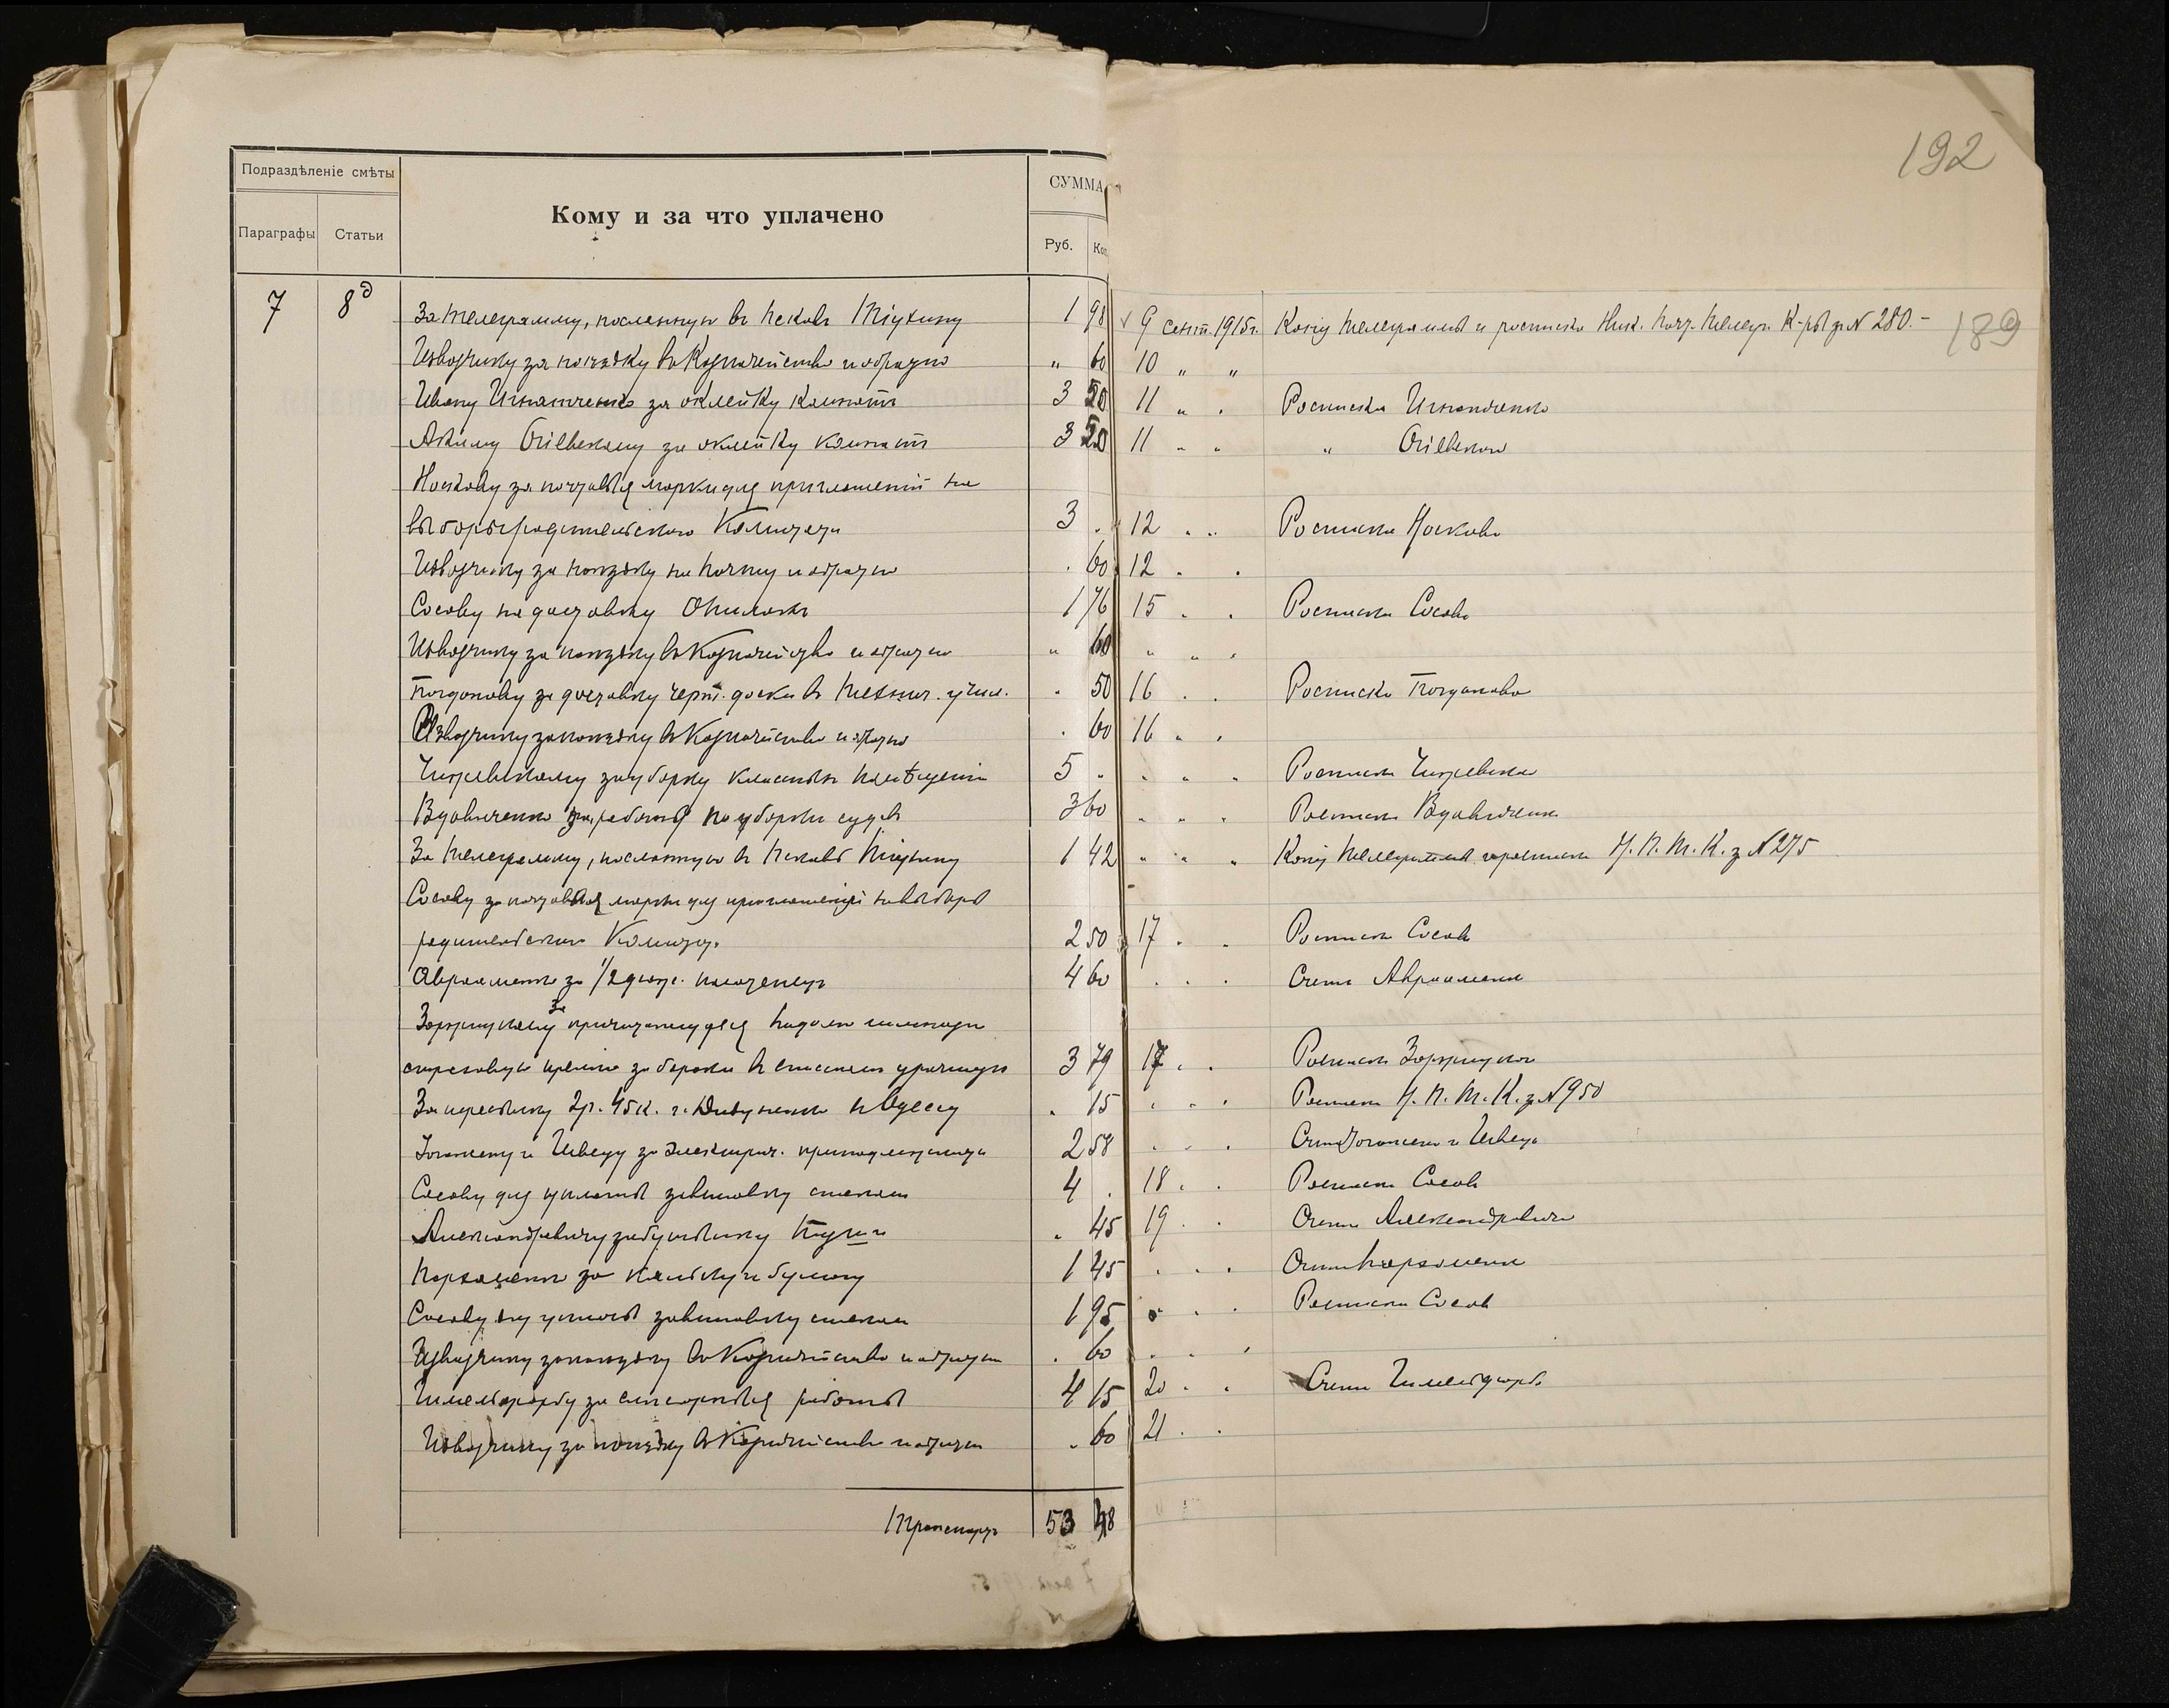 192
189
Подраздѣленіе смѣты
Параграфы Статьи
Кому и за что уплачено
СУММА
Руб. Коп.
7 8д За телеграмму, посланную въ Псковъ Тіухину 1 98 9 сент. 1915г. Копія телеграммы и росписка Ник. почт. телегр. К-ры за № 280.-
Извозчику за поѣздку въ Казначейство и обратно " 60 10 " "
Ивану Игнатченко за оклейку комнатъ 3 50 11 " " Росписка Игнатченко
Акиму за оклейку комнатъ 3 50 11 " " "
Носкову за почтовыя марки для приглашеній на
выборы родительскаго Комитета 3 . 12 " " Росписка Носкова
Извозчику за поѣздку на почту и обратно . 60 12 " "
Сосову на доставку опилокъ 1 76 15 " " Росписка Сосова
Извозчику за поѣздку въ Казначейство и обратно " 60 " " "
Богданову за доставку черт. доски въ Технич. учил. " 50 16 " " Росписка Богданова
Извозчику за поѣздку въ Казначейство и обратно . 60 16 " "
за уборку классныхъ помѣщеній 5 " " " " Росписка
Вдовиченко за работы по уборкѣ 3 60 " " " Росписка Вдовиченко
За телеграмму, посланную въ Псковъ Тіухину 1 42 " " " Копія телеграммы и росписка Н. П. Т. К. за № 275
Сосову за почтовыя марки для приглашеній на выборы
родительскаго Комитета 2 50 17 " " Росписка Сосова
Авраменко за 1/2 дюж. полотенецъ 4 60 . . . Счетъ Авраменко
за причитающуюся
страховую премію 3 79 17 . . Росписка
За пересылку 2р. 45к. г. въ Одессу . 15 . . . Росписка Н. П. Т. К. за № 950
и Швецу за электрич. принадлежности 2 58 . . . Счетъ и Швеца
Сосову для уплаты за вставку стеколъ 4 . 18 . . Росписка Сосова
Александровичу за бутылку туши . 45 19 . . Счетъ Александровича
Пархоменко за кальку и бумагу 1 45 . . . Счетъ Пархоменко
Сосову для уплаты за вставку стеколъ 1 95 . . . Росписка Сосова
Извозчику за поѣздку въ Казначейство и обратно . 60 . . .
за слесарныя работы 4 15 20 . . Счетъ
Извозчику за поѣздку въ Казначейство и обратно . 60 21 . .
Транспортъ 53 48